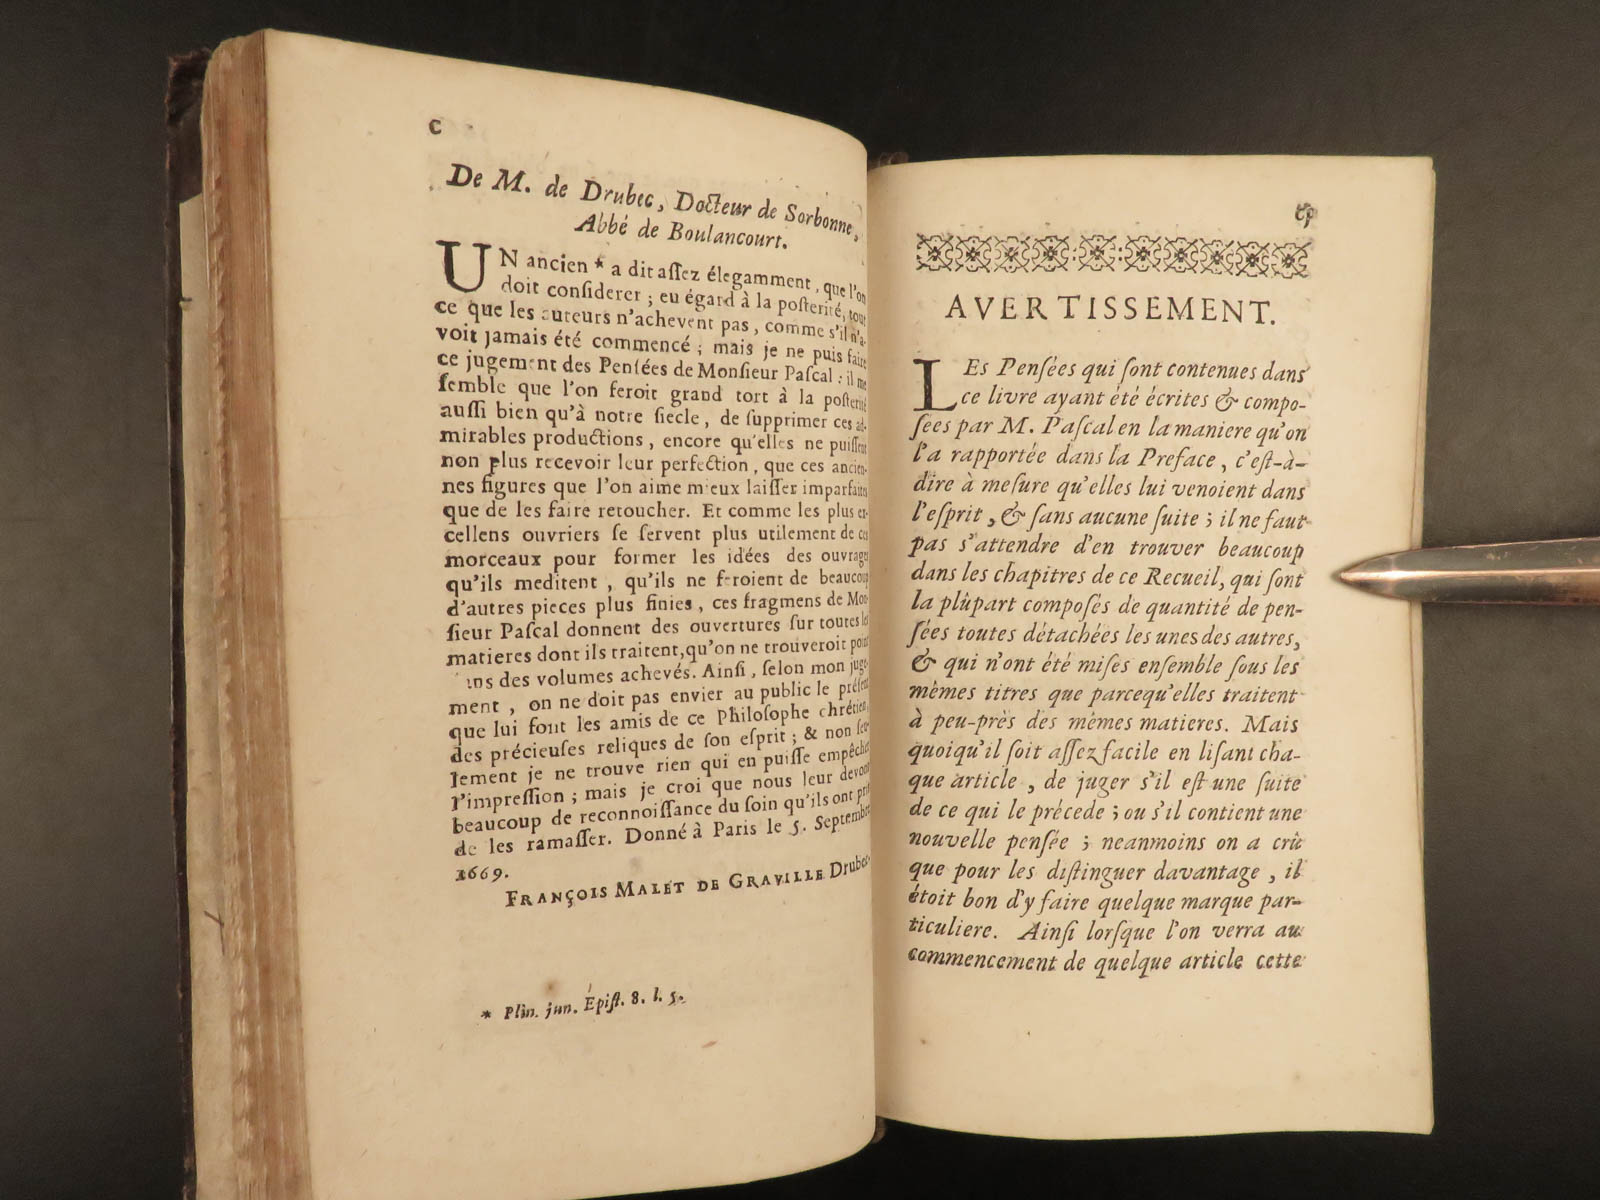 C
De M. de Drubec, Docteur de Sorbonne,
Abbé de Boulancourt.
UN ancien * a dit aſſez élegamment, que l'on
doit conſiderer; eu égard à la poſterité, tout
ce que les auteurs n'achevent pas, comme s'il n'a-
voit jamais été commencé; mais je ne puis faire
ce jugement des Penſées de Monſieur Paſcal: il me
ſemble que l'on feroit grand tort à la poſterité
auſſi bien qu'à notre ſiecle, de ſupprimer ces ad-
mirables productions, encore qu'elles ne puiſſent
non plus recevoir leur perfection, que ces ancien-
nes figures que l'on aime mieux laiſſer imparfaites
que de les faire retoucher. Et comme les plus ex-
cellens ouvriers ſe ſervent plus utilement de ces
morceaux pour former les idées des ouvrages
qu'ils meditent, qu'ils ne feroient de beaucoup
d'autres pieces plus finies, ces fragmens de Mon-
ſieur Paſcal donnent des ouvertures ſur toutes les
matieres dont ils traitent, qu'on ne trouveroit point
ans des volumes achevés. Ainſi, ſelon mon juge-
ment, on ne doit pas envier au public le préſent
que lui font les amis de ce Philoſophe chrétien,
des précieuſes reliques de ſon eſprit; & non ſeu-
lement je ne trouve rien qui en puiſſe empêcher
l'impreſſion; mais je croi que nous leur devons
beaucoup de reconnoiſſance du ſoin qu'ils ont pris
de les ramaſſer. Donné à Paris le 5. Septembre
1669.
FRANÇOIS MALET DE GRAVILLE Drubec.
* Plin. jun. Épiſt. 8. l. 5.
AVERTISSEMENT.
LEs Penſées qui ſont contenues dans
ce livre ayant été écrites & compo-
ſées par M. Paſcal en la maniere qu'on
l'a rapportée dans la Preface, c'eſt-à-
dire à meſure qu'elles lui venoient dans
l'eſprit, & ſans aucune ſuite; il ne faut
pas s'attendre d'en trouver beaucoup
dans les chapitres de ce Recueil, qui ſont
la plûpart compoſés de quantité de pen-
ſées toutes détachées les unes des autres,
& qui n'ont été miſes enſemble ſous les
mêmes titres que parcequ'elles traitent
à peu-près des mêmes matieres. Mais
quoiqu'il ſoit aſſez facile en liſant cha-
que article, de juger s'il eſt une ſuite
de ce qui le précede; ou s'il contient une
nouvelle penſée; neanmoins on a crû
que pour les diſtinguer davantage, il
étoit bon d'y faire quelque marque par-
ticuliere. Ainſi lorſque l'on verra au
commencement de quelque article cette